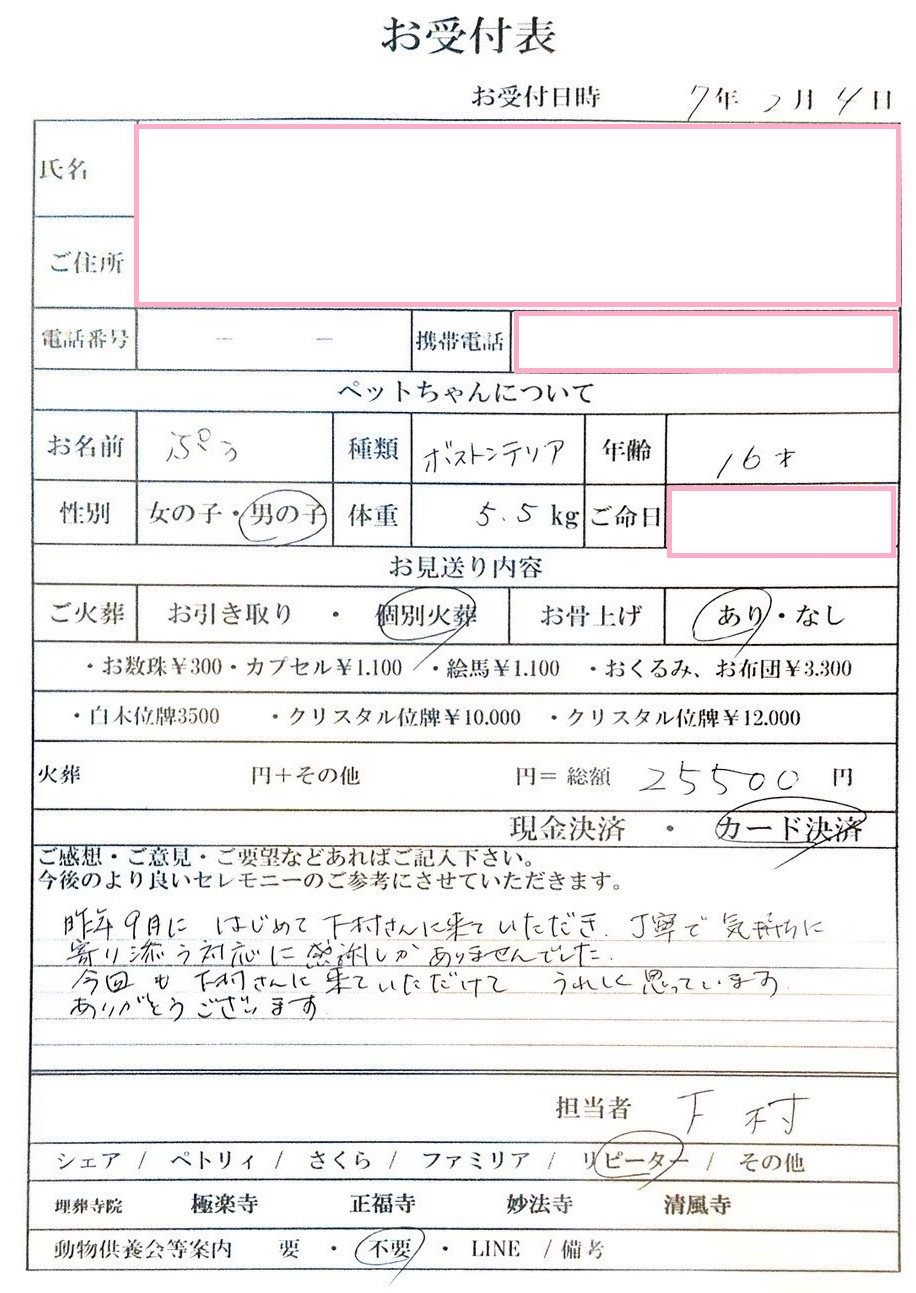 お受付表
お受付日時 7年 2月 4日
氏名
ご住所
電話番号 － － 携帯電話
ペットちゃんについて
お名前 ぷぅ 種類 ボストンテリア 年齢 16才
性別 女の子・男の子 体重 5.5 kg ご命日
お見送り内容
ご火葬 お引き取り ・ 個別火葬 お骨上げ あり・なし
・お数珠¥300・カプセル¥1.100 ・絵馬¥1.100 ・おくるみ、お布団¥3.300
・白木位牌3500 ・クリスタル位牌¥10.000 ・クリスタル位牌¥12.000
火葬 円＋その他 円＝ 総額 25500 円
現金決済 ・ カード決済
ご感想・ご意見・ご要望などあればご記入下さい。
今後のより良いセレモニーのご参考にさせていただきます。
昨年9月に はじめて下村さんに来ていただき、丁寧で気持ちに
寄り添う対応に感謝しかありませんでした.
今回も下村さんに来ていただけて うれしく思っています
ありがとうございます
担当者 下村
シェア / ペトリィ / さくら / ファミリア / リピーター / その他
埋葬寺院 極楽寺 正福寺 妙法寺 清風寺
動物供養会等案内 要 ・ 不要 ・ LINE / 備考